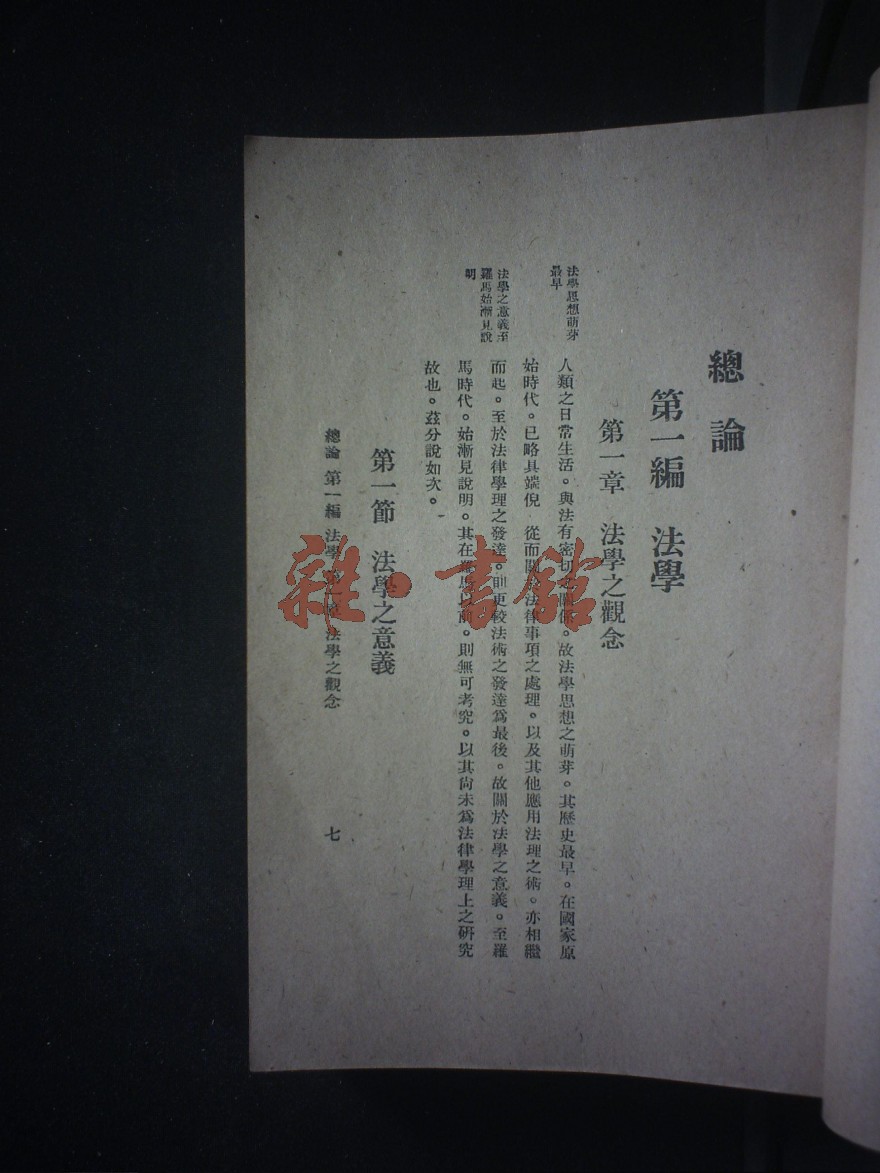 總論
第一編 法學
第一章 法學之觀念
法學思想萌芽
最早
人類之日常生活。與法有密切之關係。故法學思想之萌芽。其歷史最早。在國家原
始時代。已略具端倪 從而關於法律事項之處理。以及其他應用法理之術。亦相繼
法學之意義至
羅馬始漸見說
明
而起。至於法律學理之發達。則更較法術之發達為最後。故關於法學之意義。至羅
馬時代。始漸見說明。其在羅馬以前。則無可考究。以其尙未為法律學理上之硏究
故也。茲分說如次。
第一節 法學之意義
總論 第一編 法學 第一章 法學之觀念
七
雜·書館